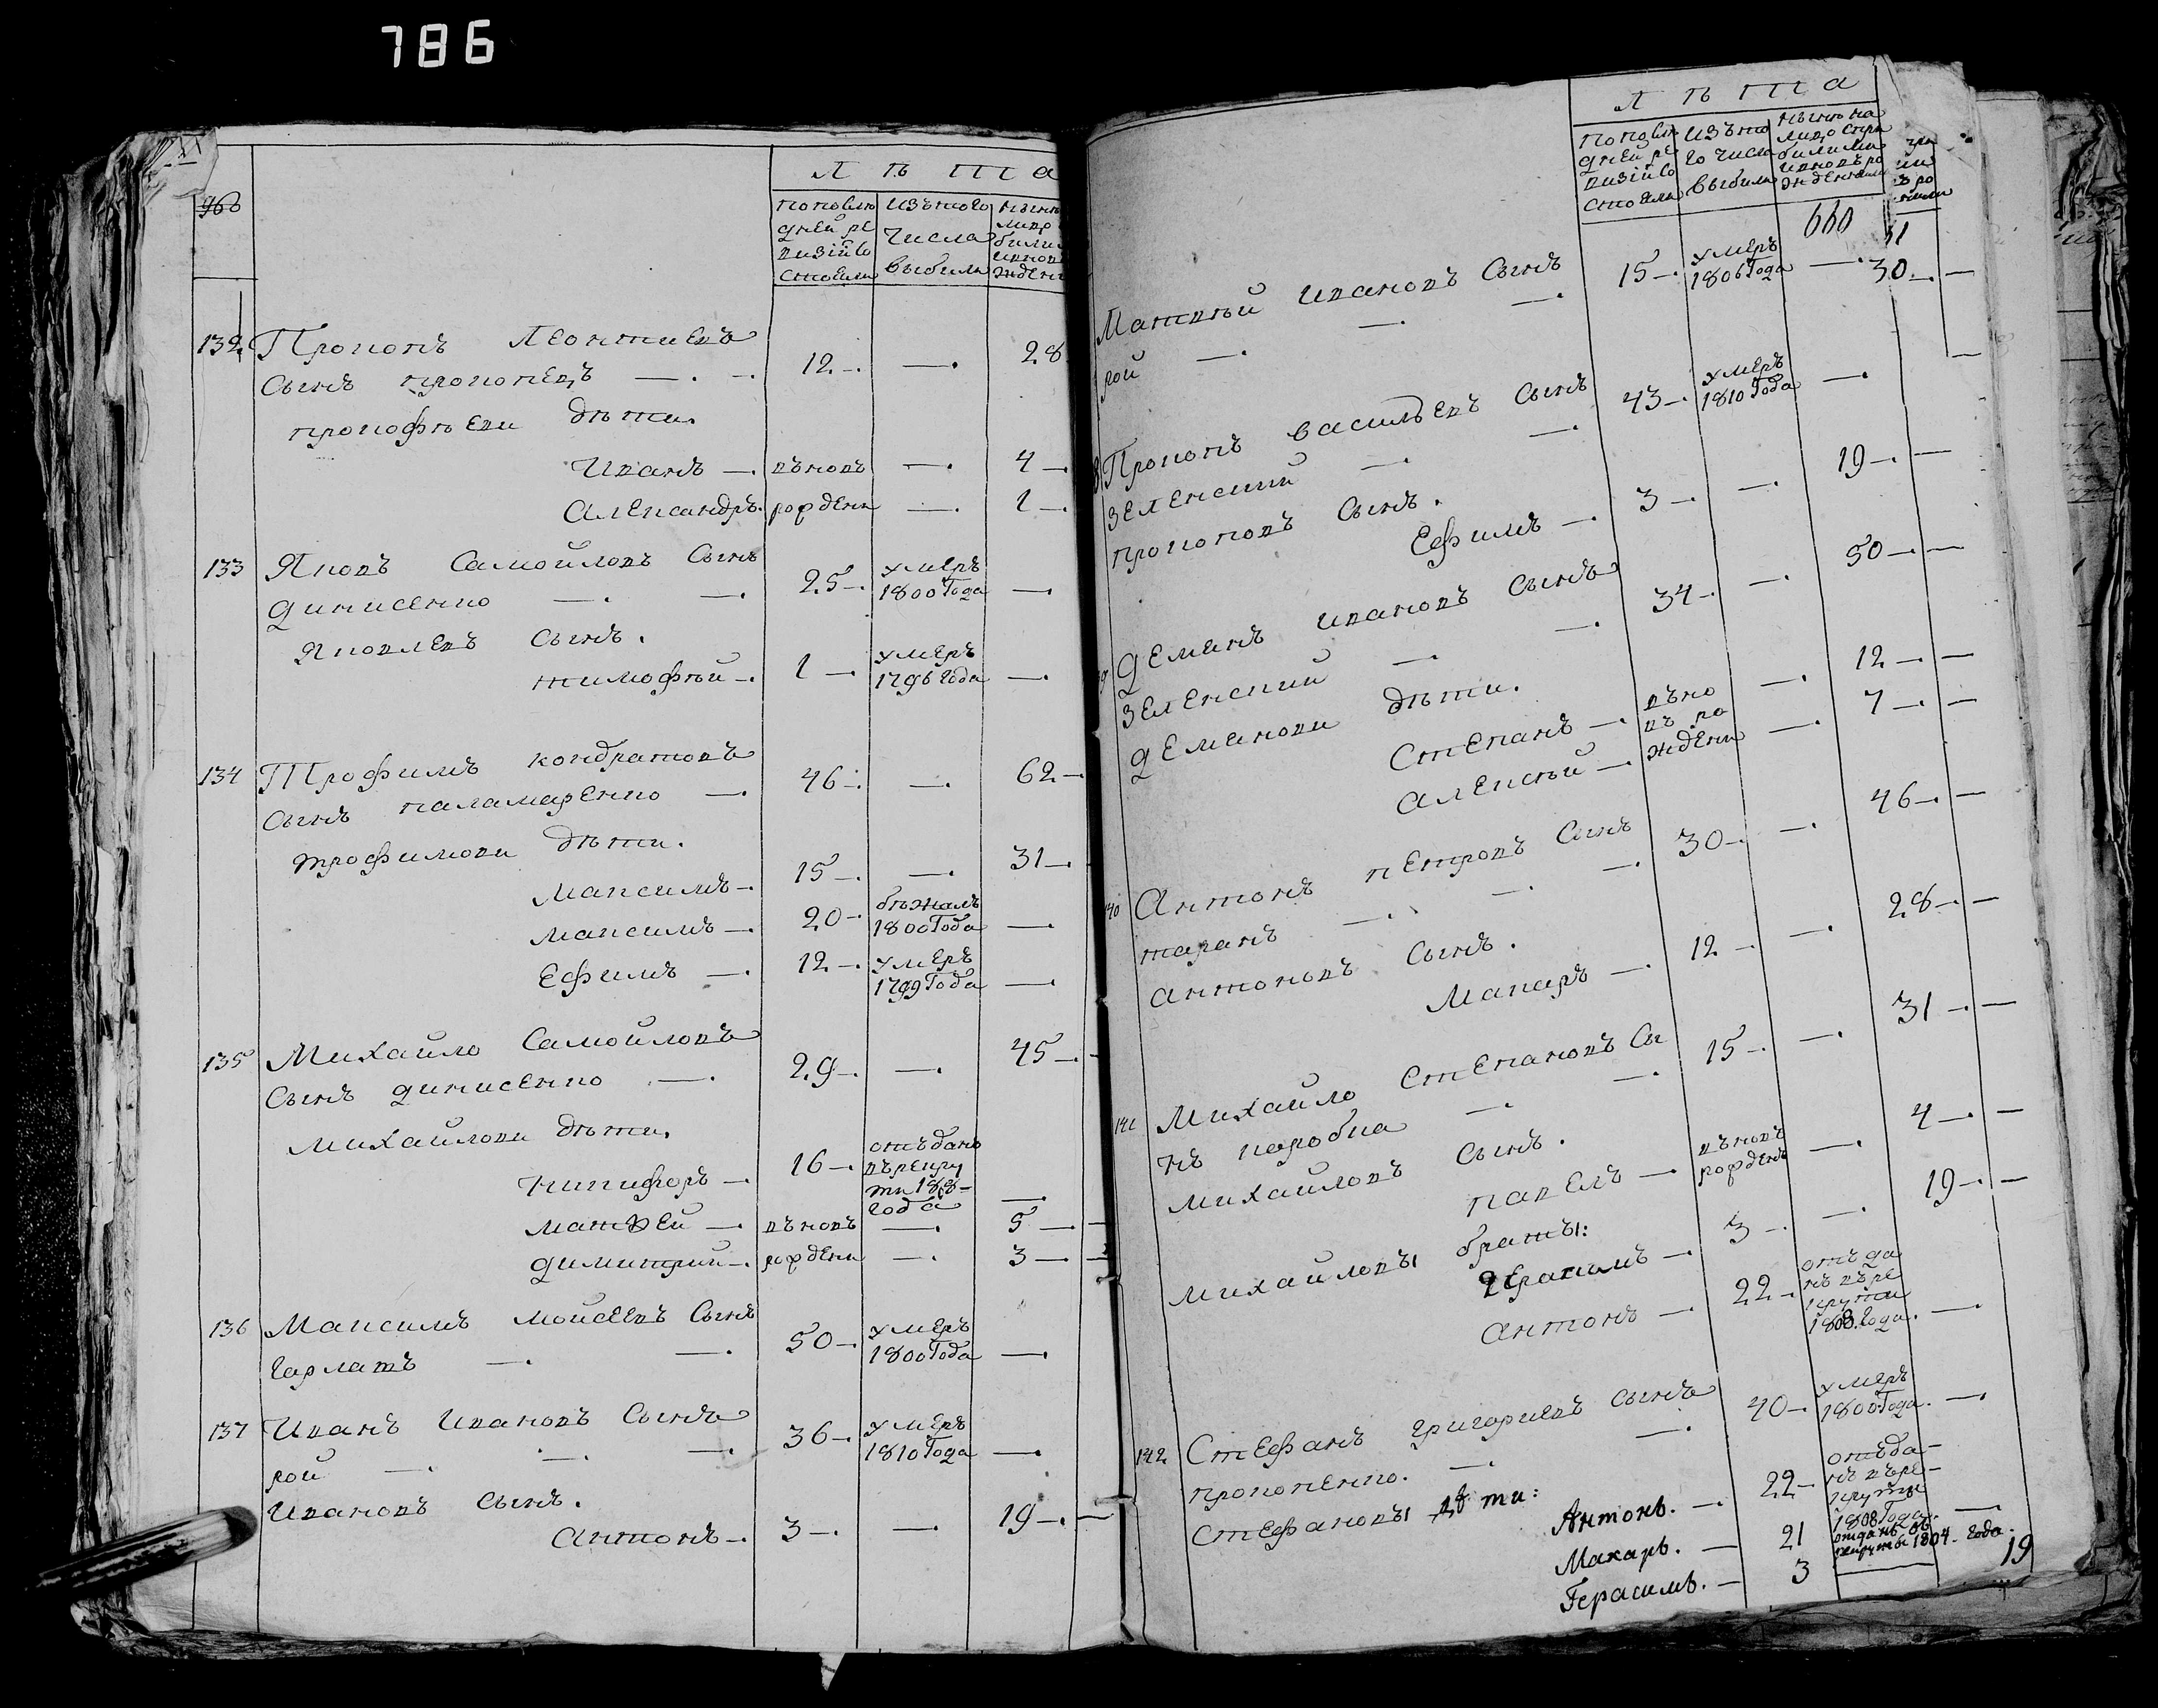 786
960
Лѣта
по послѣ
дней ре
визіи со
стояли
изъ того
числа
выбыли
нынѣ
лицо
были
132 Прокопъ Леонтиевъ
сынъ прокопецъ — 12 — 28
прокофѣеви дѣти.
Иванъ — въновъ — 4 —
Александръ рожденн — 1 —
133 Яковъ Самойловъ Сынъ
динисенко — — 25 — умеръ 1800 Года —
Яковлевъ сынъ.
тимофѣй — 1 — умеръ 1796 Года —
134 Трофимъ кондратовъ
сынъ паламаренко — 46 — — 62 —
трофимови дѣти.
Максимъ — 15 — — 31 —
Максимъ — 20 — бѣжалъ 1800 Года —
Ефимъ — 12 — умеръ 1799 Года —
135 Михайло Самойловъ
Сынъ динисенко — 29 — — 45 —
Михайлови дѣти.
Никифоръ — 16 — отъданъ
въ рекру
ти 1808
года —
Матвей — въновъ — 5 —
димитрий — рожденн — 3 —
136 Максимъ мойсеевъ Сынъ
Гарлатъ — — 50 — умеръ 1800 Года —
137 Иванъ Ивановъ Сынъ
рой — — — 36 — умеръ 1810 Года —
Ивановъ Сынъ.
Антонъ — 3 — — 19 —
Лѣта
по послѣ
дней ре
визіи со
стояли
изъ то
го числа
выбыли
нынѣ на
лицо
660
31
Матвѣй Ивановъ Сынъ
рой — — — 15 — умеръ 1806 Года — 30 —
Прокопъ васильевъ Сынъ
зеленский — — 43 — умеръ 1810 Года —
прокоповъ Сынъ.
Ефимъ — 3 — — 19 —
Деменъ Ивановъ Сынъ
зеленский — — 34 — — 50 —
Деменови дѣти.
Степанъ — въно
въ ро — 12 —
Алексѣй — жденн — 7 —
140 Антонъ петровъ Сынъ
таранъ — — — 30 — — 46 —
Антоновъ Сынъ.
Макаръ — 12 — — 28 —
141 Михайло Степановъ Сы
нъ коробка — — 15 — — 31 —
Михайловъ Сынъ.
павелъ — въновъ
рожденъ — 4 —
Михайловы браты:
Герасимъ — 3 — — 19 —
Антонъ — 22 — отъда
нъ въ ре
крути
1808 Года. —
142 Стефанъ григориевъ сынъ
прокопенко. — — 40 — умеръ 1800 Года. —
Стефановы дѣти:
Антонъ. — 22 — отъда
нъ въ ре
крути
1808 Года. —
Макаръ. — 21 отданъ въ
рекруты 1804. года.
Герасимъ. — 3 — 19